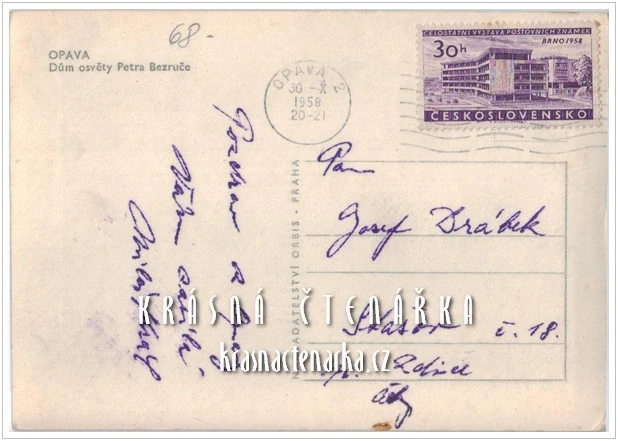 68-
OPAVA
Dům osvěty Petra Bezruče
OPAVA 2
30 -X
1958
20-21
CELOSTÁTNÍ VÝSTAVA POŠTOVNÍCH ZNÁMEK
BRNO 1958
30h
ČESKOSLOVENSKO
NAKLADATELSTVÍ ORBIS - PRAHA
Pozdrav
Vám
Pan
Josef Drábek
č. 18.
p. Zdice
KRÁSNÁ ČTENÁŘKA
krasnactenarka.cz